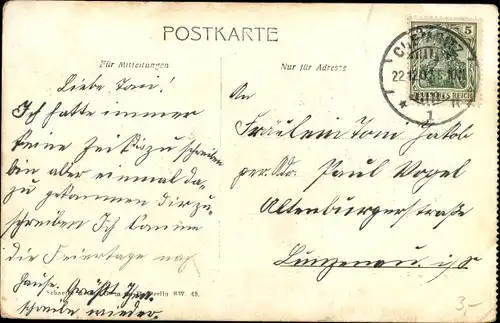 POSTKARTE
Für Mitteilungen
Nur für Adresse
5
DEUTSCHES REICH
CHEMNITZ
22.12.0
1
Liebe Toni!
Ich hatte immer
keine Zeit dazu schreiben
bin aber einmal da-
zu gekommen dir zu
schreiben Ich komme
die Feiertage nach
Hause. Grüßt
schreibe wieder.
An
Fräulein Toni Jakob
per. Ad. Paul Vogel
Altenburgerstraße
Lunzenau i/S.
Berlin SW. 49.
3,-